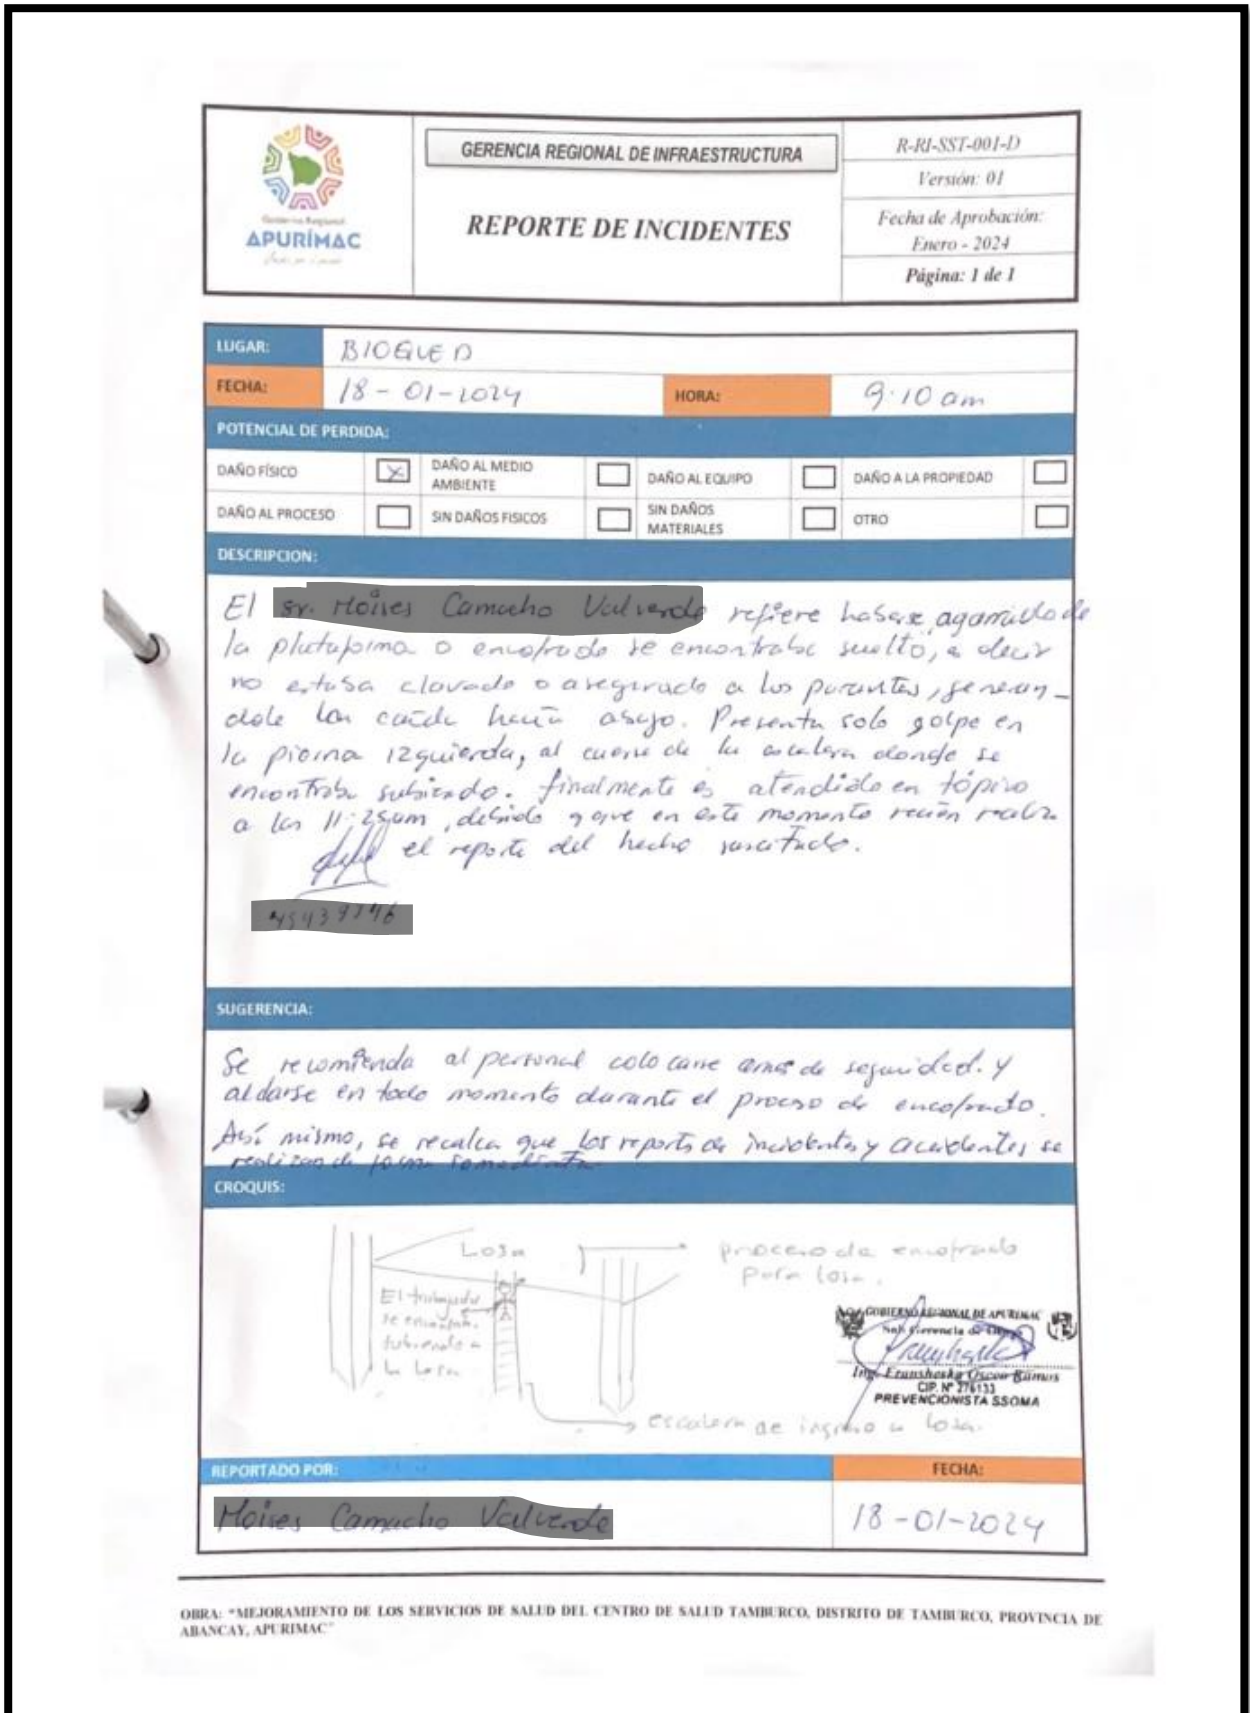 Gobierno Regional
APURÍMAC
GERENCIA REGIONAL DE INFRAESTRUCTURA
REPORTE DE INCIDENTES
R-RI-SST-001-D
Versión: 01
Fecha de Aprobación:
Enero - 2024
Página: 1 de 1
LUGAR: BIOQUE D
FECHA: 18-01-2024 HORA: 9:10 am
POTENCIAL DE PERDIDA:
DAÑO FÍSICO X DAÑO AL MEDIO AMBIENTE DAÑO AL EQUIPO DAÑO A LA PROPIEDAD
DAÑO AL PROCESO SIN DAÑOS FISICOS SIN DAÑOS MATERIALES OTRO
DESCRIPCION:
El refiere haberse agarrado de
la plataforma o encofrado se encontraba suelto, es decir
no estaba clavado o asegurado a los parantes, generan-
dole la caída hacia abajo. Presenta solo golpe en
la pierna izquierda, al caerse de la escalera donde se
encontraba subiendo. finalmente es atendido en tópico
a las 11:25am, debido a que en este momento recién realiza
el reporte del hecho suscitado.
SUGERENCIA:
Se recomienda al personal colocarse arnes de seguridad. y
aldarse en todo momento durante el proceso de encofrado.
Así mismo, se recalca que los reportes de incidentes y accidentes se
realizan de forma inmediata.
CROQUIS:
Losa
proceso de encofrado
para losa.
El trabajador
se encontraba
subiendo a
la Losa
escalera de ingreso a losa.
GOBIERNO REGIONAL DE APURIMAC
Sub Gerencia de Obras
Ing. Fransheska Oscco Ramos
CIP. N° 276133
PREVENCIONISTA SSOMA
REPORTADO POR: FECHA:
18-01-2024
OBRA: "MEJORAMIENTO DE LOS SERVICIOS DE SALUD DEL CENTRO DE SALUD TAMBURCO, DISTRITO DE TAMBURCO, PROVINCIA DE
ABANCAY, APURIMAC"